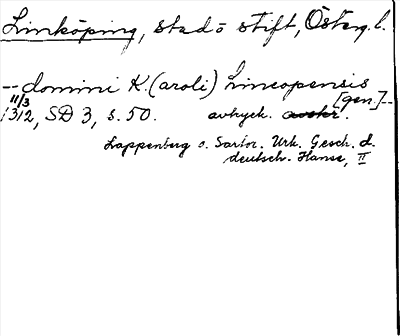 Linköping, stad o stift, Österg. l.
-- domini K.(aroli) Lincopensis
[gen.] --
11/3
1312, SD 3, s. 50. avtryck.
Lappenberg o. Sartor. Urk. Gesch. d.
deutsch. Hanse, II